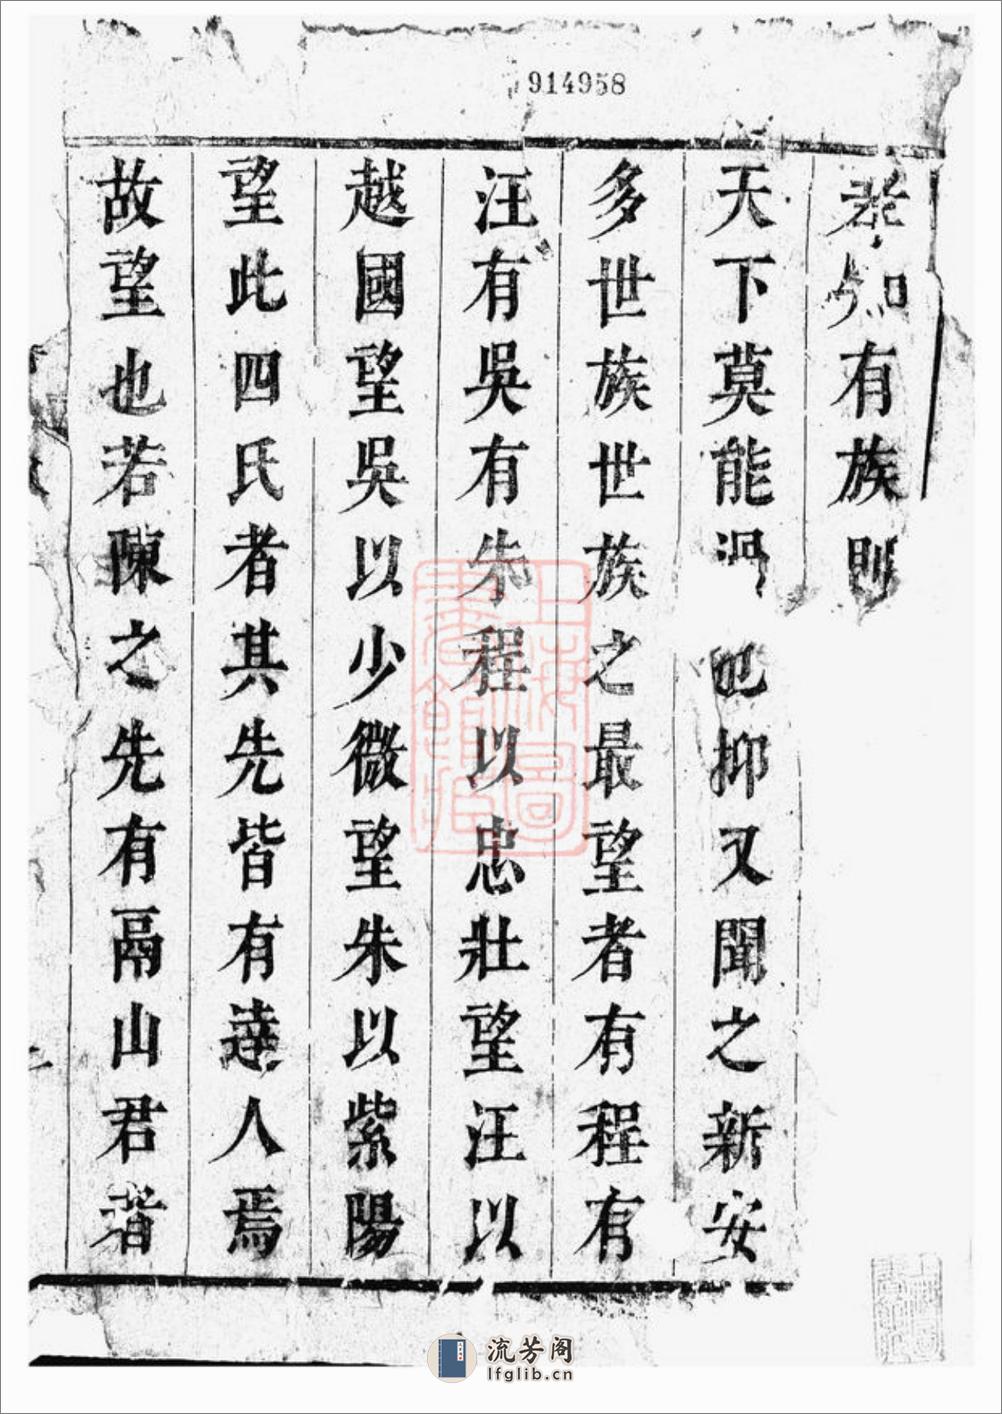 914958
知有族則
天下莫能也抑又聞之新安
多世族世族之最望者有程有
汪有吳有朱程以忠壯望汪以
越國望吳以少微望朱以紫陽
望此四氏者其先皆有達人焉
故望也若陳之先有鬲山君者
上海圖書館藏
流芳阁
lfglib.cn